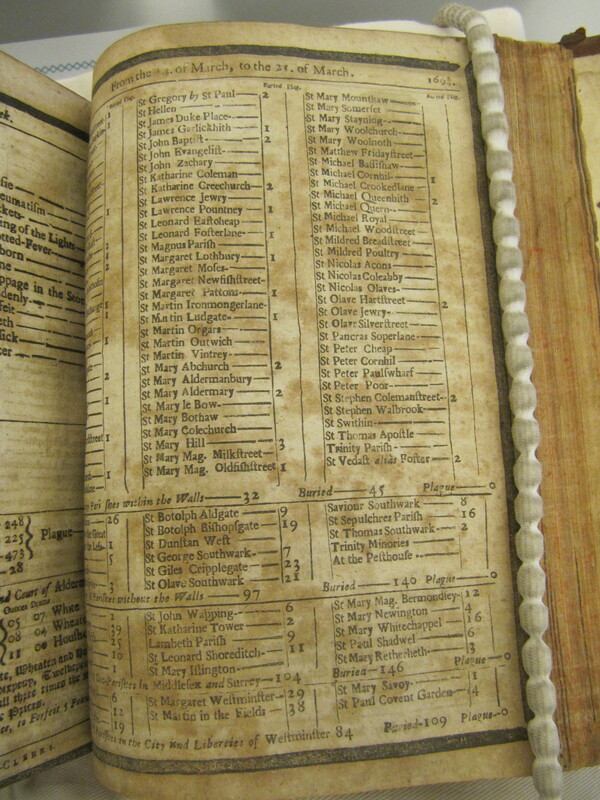 rk.
eumatism
ing of the Lights
otted-Fever
born
ppage in the Sto
ddenly
eth
248
225
473
28
Plague
nd Court of Alderm
05 07 White
08 04 Wheate
11 00 Housh
CLERKS.
From the of March, to the 21. of March. 169
Buried Plag.
St Gregory by St Paul 2
St Hellen
St James Duke Place
St James Garlickhith 1
St John Baptist 2
St John Evangelist
St John Zachary
St Katharine Coleman
St Katharine Creechurch 2
St Lawrence Jewry
St Lawrence Pountney 1
St Leonard Eastcheap
St Leonard Fosterlane 1
St Magnus Parish
St Margaret Lothbury 1
St Margaret Moses
St Margaret Newfishstreet
St Margaret Pattons 1
St Martin Ironmongerlane
St Martin Ludgate 1
St Martin Orgars
St Martin Outwich
St Martin Vintrey
St Mary Abchurch 2
St Mary Aldermanbury
St Mary Aldermary 2
St Mary le Bow 1
St Mary Bothaw
St Mary Colechurch
St Mary Hill 3
St Mary Mag. Milkstreet
St Mary Mag. Oldfishstreet 1
Buried Plag.
St Mary Mounthaw
St Mary Somerset
St Mary Stayning
St Mary Woolchurch
St Mary Woolnoth
St Matthew Fridaystreet
St Michael Bassishaw
St Michael Cornhil
St Michael Crookedlane 1
St Michael Queenhith 2
St Michael Quern
St Michael Royal
St Michael Woodstreet
St Mildred Breadstreet
St Mildred Poultry
St Nicolas Acons
St Nicolas Coleabby
St Nicolas Olaves
St Olave Hartstreet 2
St Olave Jewry
St Olave Silverstreet
St Pancras Soperlane
St Peter Cheap
St Peter Cornhil
St Peter Paulswharf
St Peter Poor
St Stephen Colemanstreet 2
St Stephen Walbrook
St Swithin
St Thomas Apostle
Trinity Parish
St Vedast alias Foster 2
within the Walls 32 Buried 45 Plague 0
26
St Botolph Aldgate 9
St Botolph Bishopsgate 19
St Dunstan West
St George Southwark 7
St Giles Cripplegate 23
St Olave Southwark 21
Saviour Southwark 8
St Sepulchres Parish 16
St Thomas Southwark 2
Trinity Minories
At the Pesthouse
without the Walls 97 Buried 140 Plague 0
St John Wapping 6
St Katharine Tower 2
Lambeth Parish 9
St Leonard Shoreditch 11
St Mary Islington
St Mary Mag. Bermondsey 12
St Mary Newington 4
St Mary Whitechappel 16
St Paul Shadwel 6
St Mary Retherheth 3
in Middlesex and Surrey 104 Buried 146 Plague 0
St Margaret Westminster 29
St Martin in the Fields 38
St Mary Savoy 1
St Paul Covent Garden 4
in the City and Liberties of Westminster 84 Buried 109 Plague 0